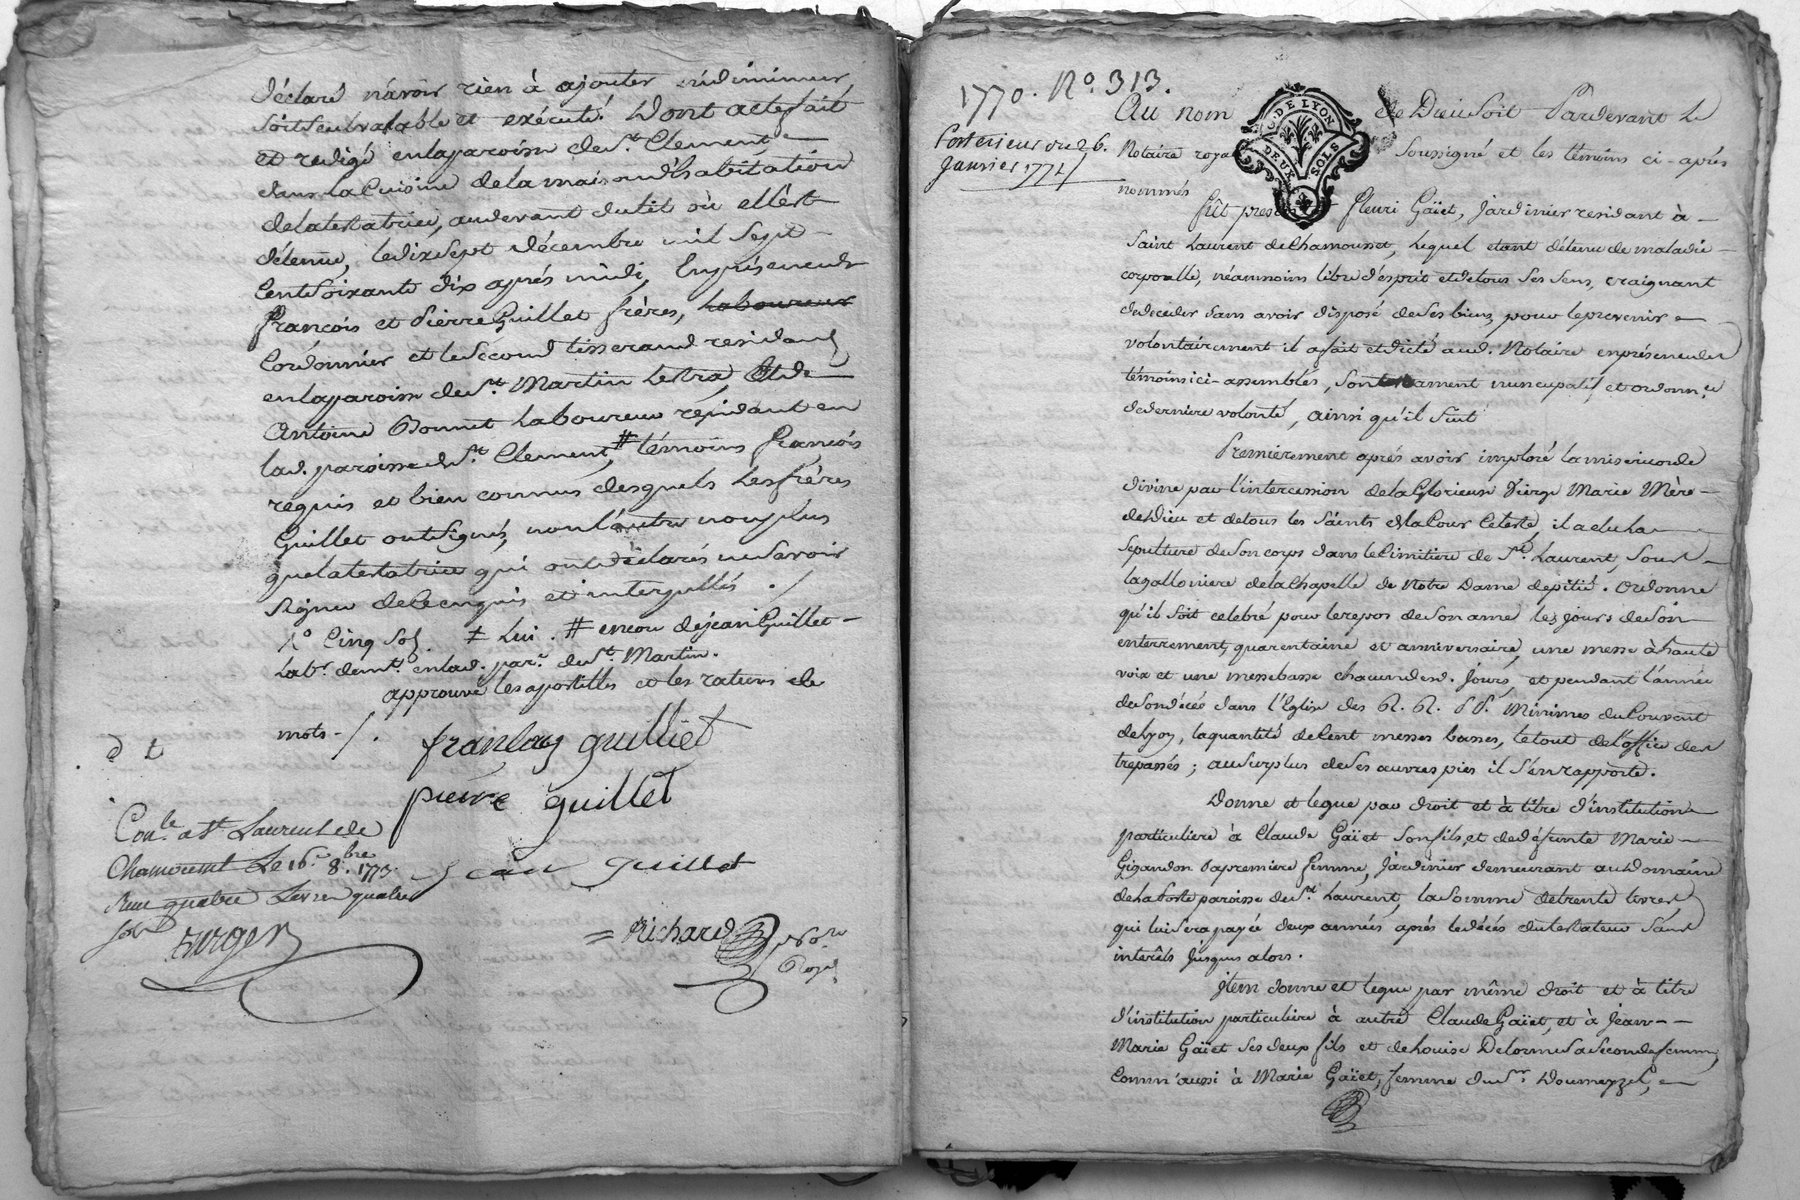 déclaré n'avoir rien à ajouter ni diminuer
soit seul valable et exécuté. Dont acte fait
et redigé en la paroisse de St. Clement
dans la Cuisine de la maison d'habitation
de la testatrice, au devant du lit où elle est
détenue, le dix sept décembre mil sept
cent soixante dix après midi, En présence de
françois et Pierre Guillet frères, laboureur
Cordonnier et le second tisserand residants
en la paroisse de St. Martin Lestra, Et de
Antoine Bonnet Laboureur résidant en
lad. paroisse de St. Clement, # témoins françois
requis et bien connus desquels les frères
Guillet ont signé, non l'autre non plus
que la testatrice qui ont déclarés ne savoir
signer de ce enquis et interpellés ./
Cinq sols. ≠ Lui. # encore de jean Guillet
Labr. demt. en lad. parr. de St. Martin.
approuvé les apostilles et les ratures de
mots ./.
françois guilliet
pierre guillet
Jean guillet
Conlé a St Laurent de
Chamousset Le 16e 8.bre 1773.
Reçu quatre Livres quatre
sols
= Richard Nore
Royal
1770. No. 313.
Posterieur du 26.
Janvier 1774
AC. DE LYON
DEUX SOLS
Au nom de Dieu soit Pardevant Le
Notaire royal soussigné et les témoins ci-après
nommés
fût present fleuri Gaïet, Jardinier residant à
Saint Laurent de Chamousset, lequel etant détenu de maladie
corporelle, néanmoins libre d'esprit et de tous ses sens, craignant
de deceder sans avoir disposé de ses biens, pour le prevenir
volontairement il a fait et dicté aud. Notaire en présence des
témoins ci-assemblés, son testament nuncupatif et ordonnce
de derniere volonté, ainsi qu'il suit
Premierement aprés avoir imploré la misericorde
divine par l'intercession de la Glorieuse Vierge Marie Mère
de Dieu et de tous les Saints de la Cour Celeste il a elu la
sepulture de son corps dans le Cimitiere de St. Laurent, sous
la gallonniere de la Chapelle de Notre Dame de pitié. Ordonne
qu'il soit celebré pour le repos de son ame les jours de son
enterrement, quarentaine et anniversaire, une messe à haute
voix et une messe basse chacun desd. Jours, et pendant l'année
de son décés dans l'Eglise des R. R. P. P. Minimes du Couvent
de Lyon, la quantité de Cent messes basses, le tout de l'office des
trepassés; au surplus de ses œuvres pies il s'en rapporte.
Donne et legue par droit et à titre d'institution
particuliere à Claude Gaïet son fils, et de défunte Marie
Girandon sa premiere femme, Jardinier demeurant au Domaine
de la Forte paroisse de St. Laurent, la somme de trente livres
qui lui sera payée deux années aprés le décés du testateur sans
interêts jusques alors.
Item donne et legue par même droit et à titre
d'institution particuliere à autre Claude Gaïet, et à Jean-
Marie Gaïet ses deux fils et de Louise Delorme sa seconde femme,
Comm'aussi à Marie Gaïet, femme du Sr. Doumeyzel,